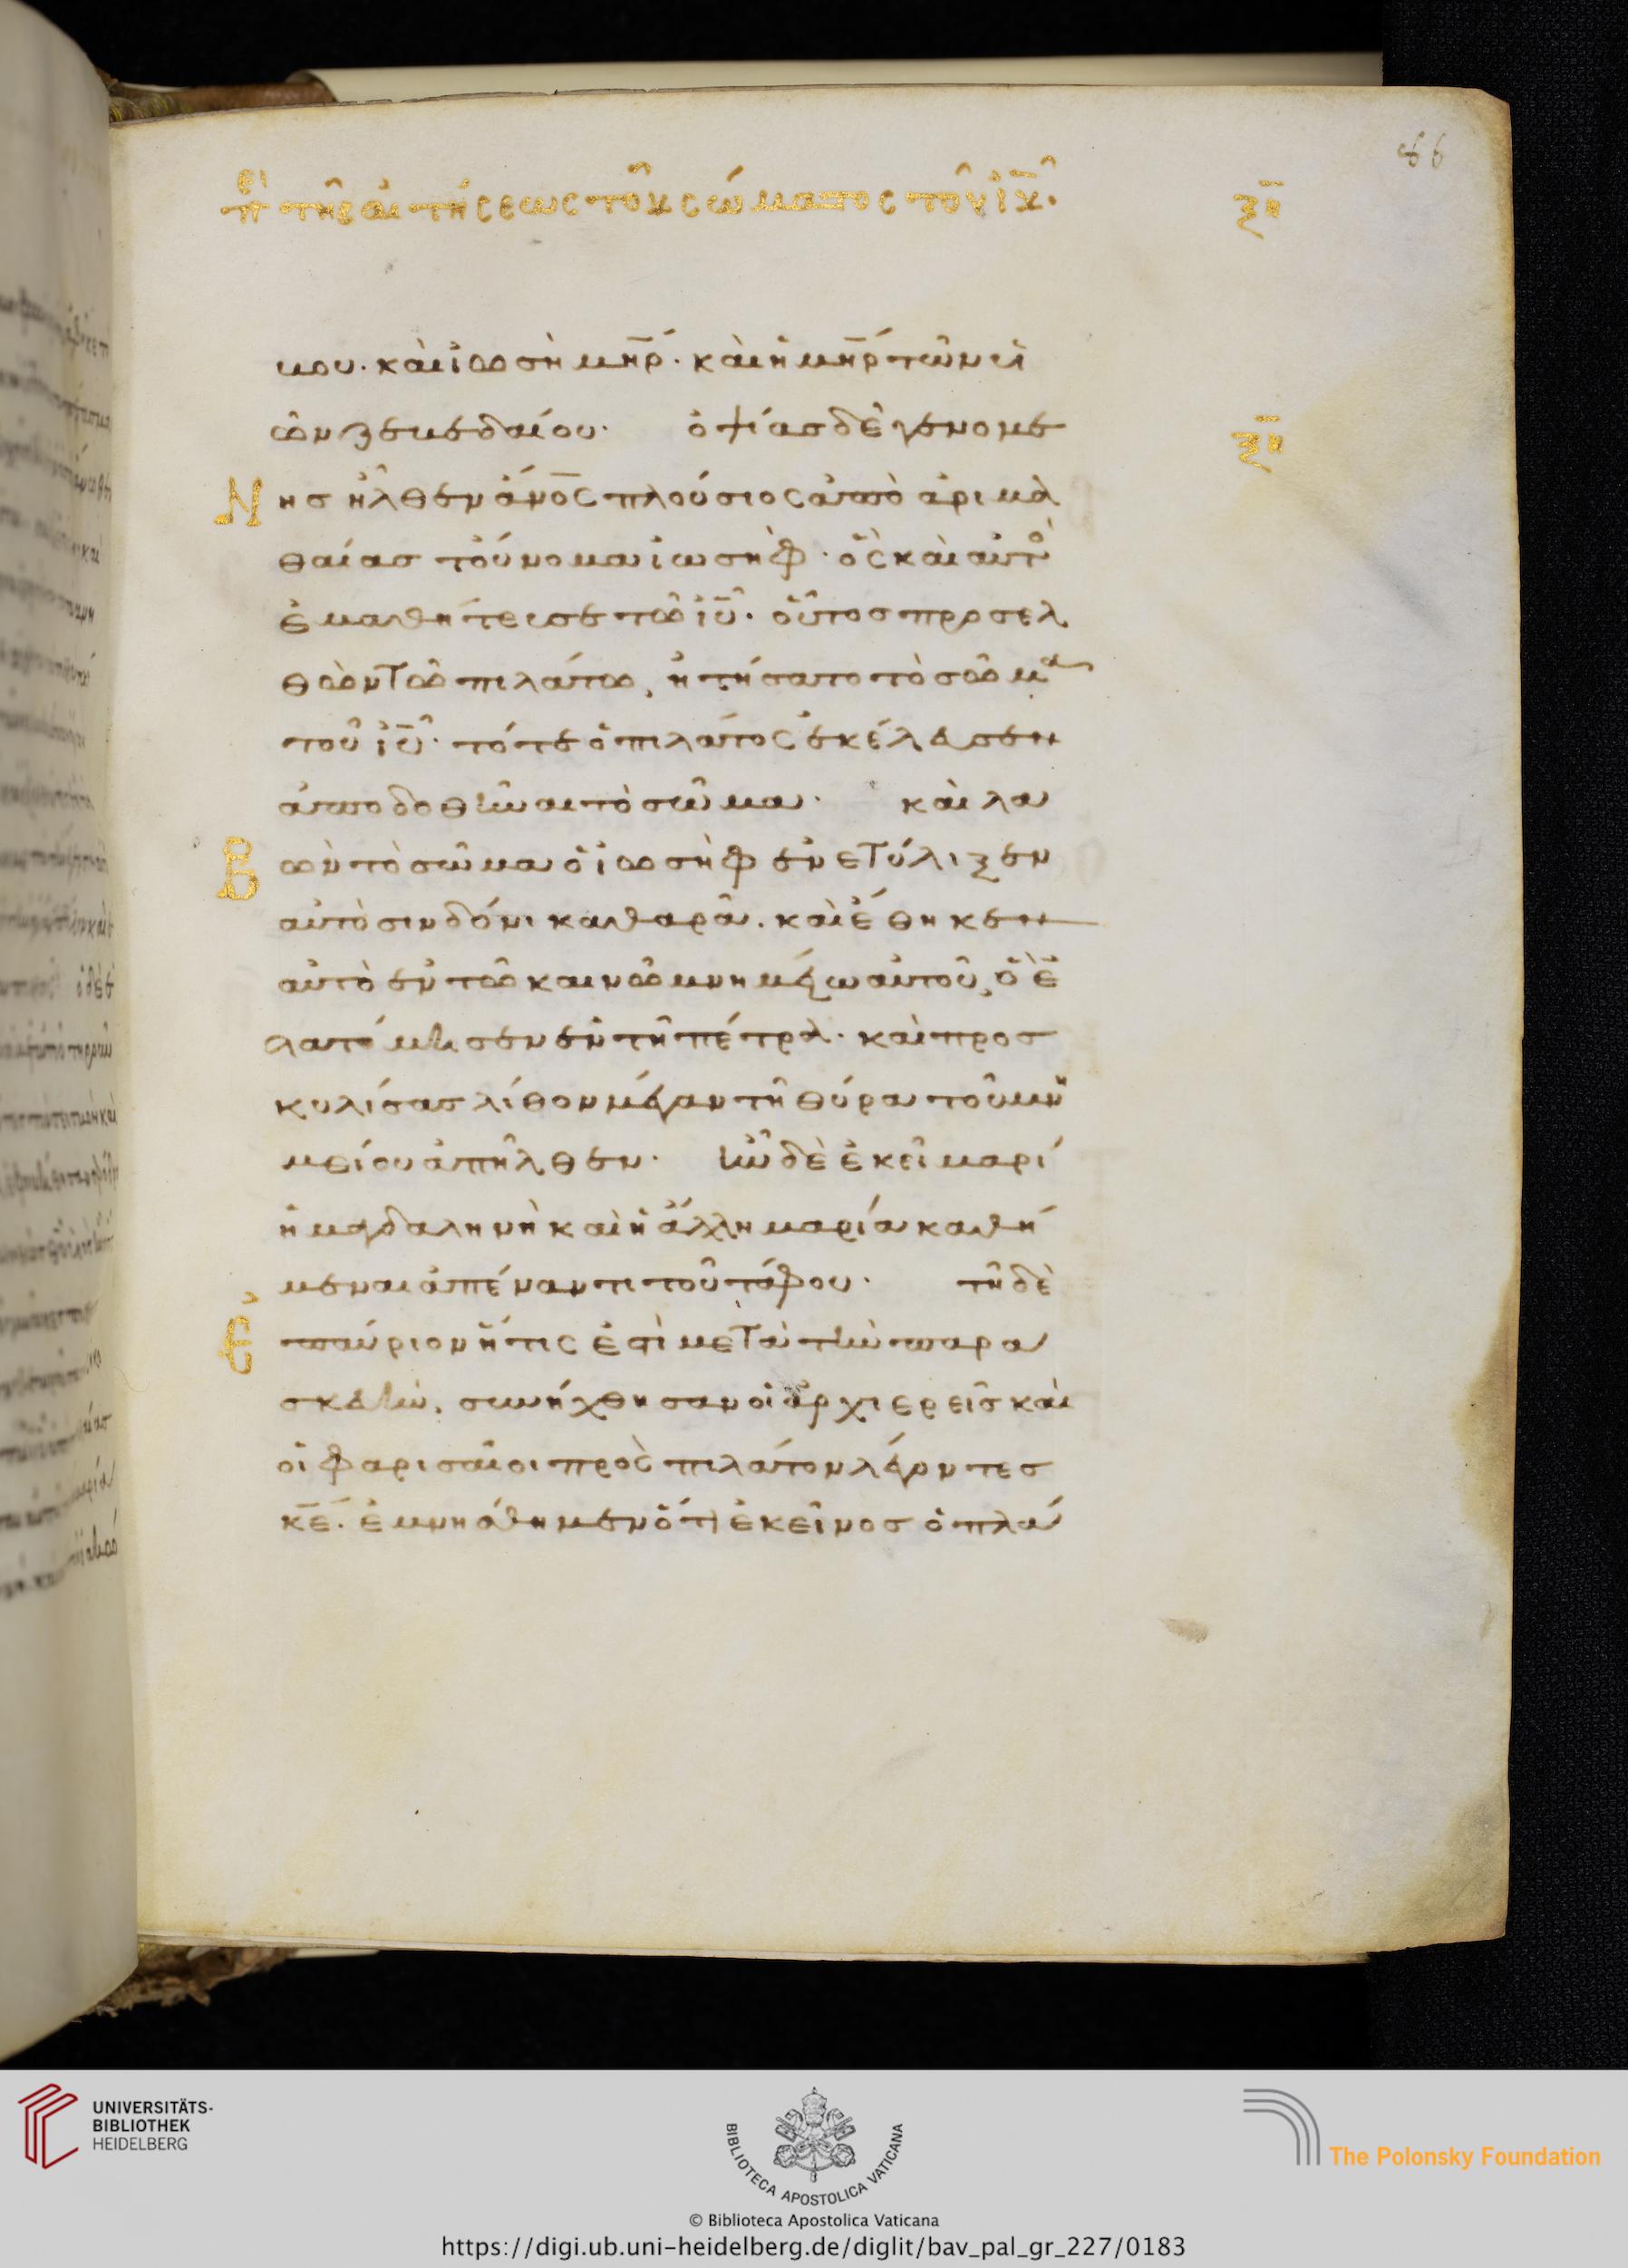 86
περὶ τῆς αἰτήσεως τοῦ σώματος τοῦ ἰ̅χ̅.
ξη̅
κου. καὶ ἰωσὴ μη̅ρ. καὶ ἡ μη̅ρ τῶν υἱ
ῶν ζεβεδαίου· ὀψίας δὲ γενομέ
ξη̅
Νης ἦλθεν ἄνο̅ς πλούσιος ἀπὸ ἀριμα
θαίας τοὔνομα ἰωσὴφ· ὃς καὶ αὐτὸ
ἐμαθήτευσε τῶ ἰυ̅· οὗτος προσελ
θὼν τῶ πιλάτω, ἠτήσατο τὸ σῶμα
τοῦ ἰυ̅· τότε ὁ πιλάτος ἐκέλευσεν
ἀποδοθῆναι τὸ σῶμα· καὶ λα
Βὼν τὸ σῶμα ὁ ἰωσὴφ ἐνετύλιξεν
αὐτὸ σινδόνι καθαρᾶ. καὶ ἔθηκεν
αὐτὸ ἐν τῶ καινῶ μνημείω αὐτοῦ, ὃ ἐ
λατόμησεν ἐν τῆ πέτρα· καὶ προσ
κυλίσας λίθον μέγαν τῆ θύρα τοῦ μνη
μείου ἀπῆλθεν· ἦν δὲ ἐκεῖ μαρί
ἡ μαγδαληνὴ καὶ ἡ ἄλλη μαρία καθή
μεναι ἀπέναντι τοῦ τάφου· τῆ δὲ
Ἐπαύριον ἥτις ἐστὶ μετὰ τὴν παρα
σκευὴν, συνήχθησαν οἱ ἀρχιερεῖς καὶ
οἱ φαρισαῖοι πρὸς πιλάτον λέγοντες
κε̅· ἐμνήσθημεν ὅτι ἐκεῖνος ὁ πλά
UNIVERSITÄTS-
BIBLIOTHEK
HEIDELBERG
BIBLIOTECA APOSTOLICA VATICANA
The Polonsky Foundation
© Biblioteca Apostolica Vaticana
https://digi.ub.uni-heidelberg.de/diglit/bav_pal_gr_227/0183